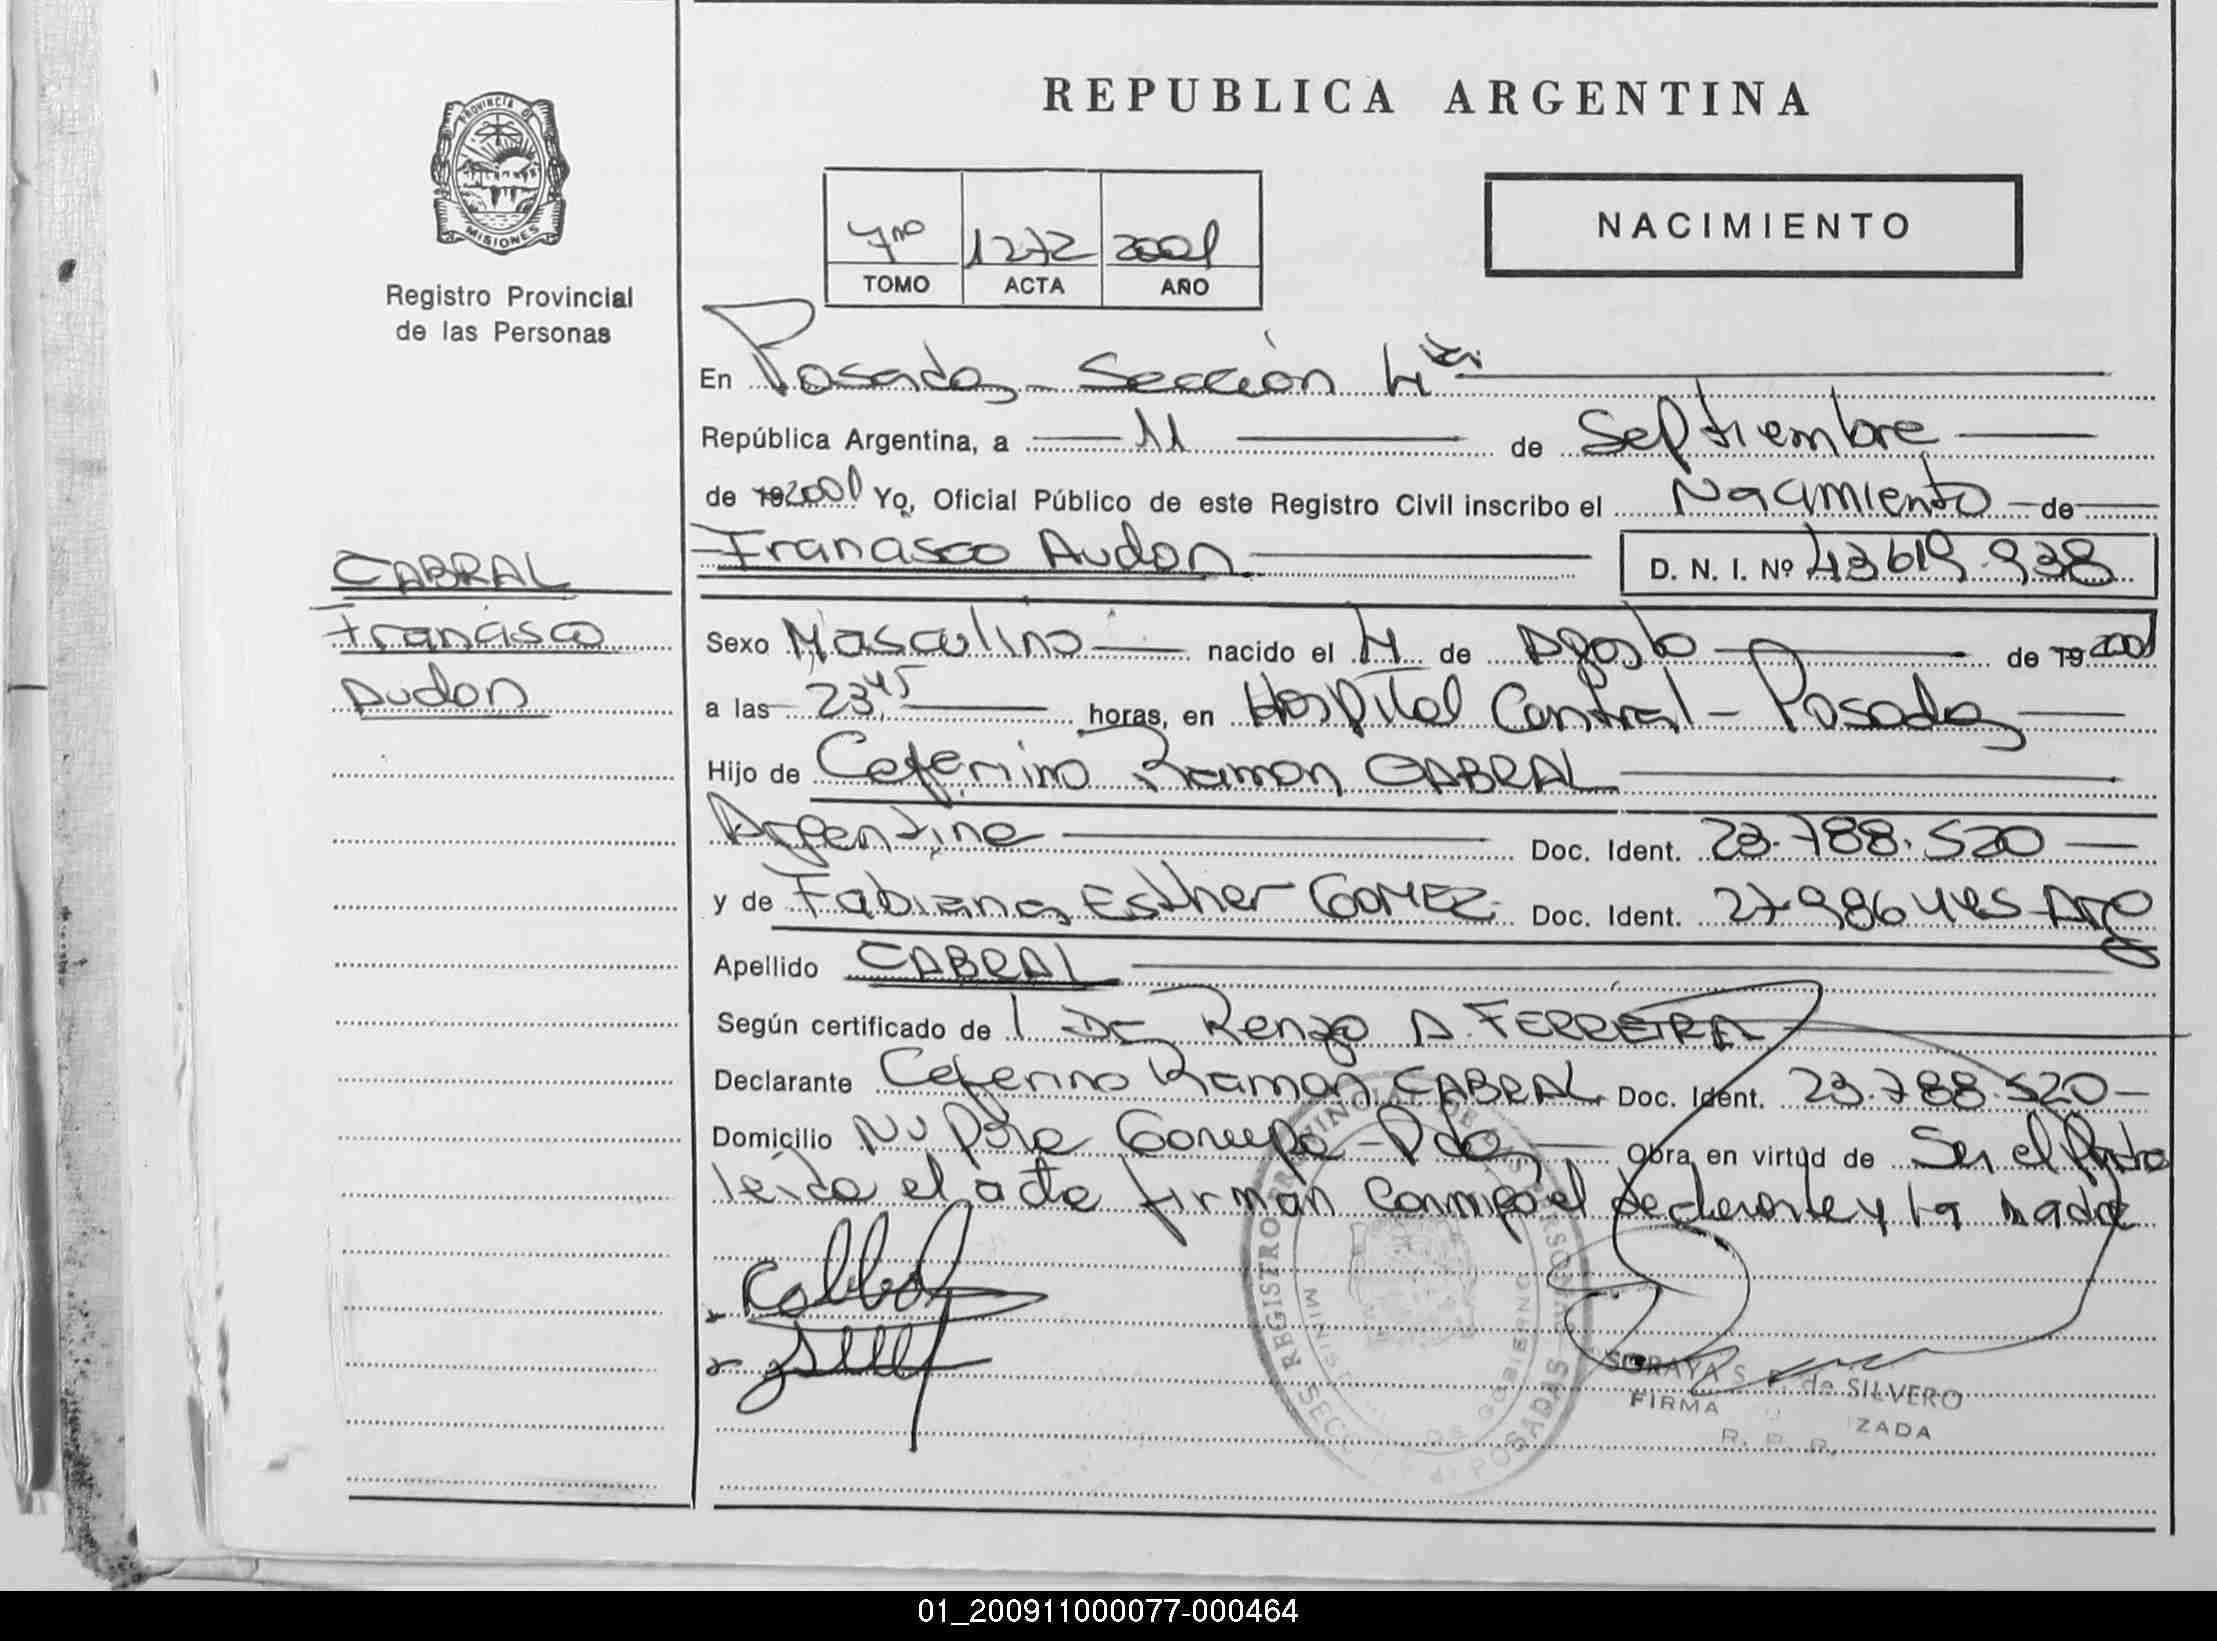 REPUBLICA ARGENTINA
PROVINCIA DE
MISIONES
Registro Provincial
de las Personas
NACIMIENTO
7mo 1272 2001
TOMO ACTA AÑO
En Posadas - Sección 4ta
República Argentina, a 11 de Septiembre
de 19 2001 Yo, Oficial Público de este Registro Civil inscribo el Nacimiento de
Francisco Audon D. N. I. Nº 43619.938
CABRAL
Francisco
Audon
Sexo Masculino nacido el de Agosto de 19 2001
a las 23,45 horas, en Hospital Central - Posadas
Hijo de Ceferino Ramon CABRAL
Argentino Doc. Ident. 23.788.520
y de Fabiana Esther GOMEZ Doc. Ident. 27986445 Arg
Apellido CABRAL
Según certificado de Dr Renzo A. FERREIRA
Declarante Ceferino Ramon CABRAL Doc. Ident. 23.788.520
Domicilio Pdas Obra en virtud de Ser el Padre
leída el acta firman conmigo el declarante y la madre
REGISTRO PROVINCIAL DE LAS PERSONAS
MINISTERIO DE GOBIERNO
SECCION 4ª POSADAS
SORAYA S. de SILVERO
FIRMA IZADA
R. P. P.
01_200911000077-000464